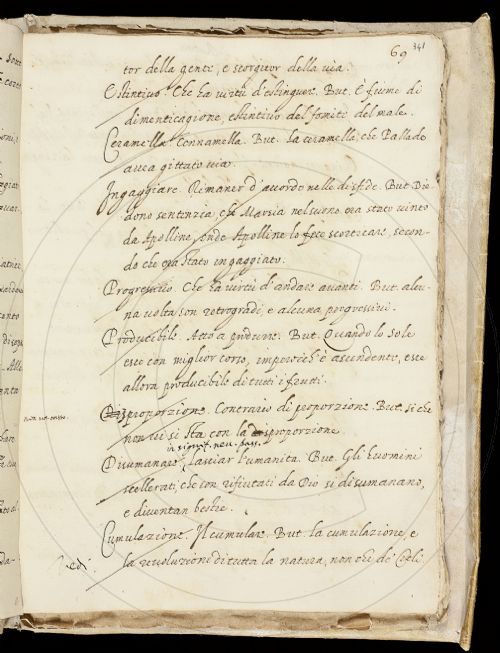 69 341
tor della gente, e scorgitor della via.
Estintivo. Che ha virtù d'estinguer. But. È fiume di
dimenticagione, estintivo del fomite del male.
Ceramella. Cennamella. But. la ceramella, che Pallade
avea gittato via.
Ingaggiare. Rimaner d'accordo nelle disfide. But. Die-
dono sentenzia, che Marsia nel suono era stato vinto
da Apolline, onde Apolline lo fece scorticare, secon-
do che era stato ingaggiato.
Progressivo. Che ha virtù d'andare avanti. But. alcu-
na volta son retrogradi, e alcuna progressivi.
Producibile. Atto a produrre. But. Quando lo Sole
esce con miglior corso, imperocch' è ascendente, esce
allora producibile di tutti i frutti.
Disproporzione. Contrario di proporzione. But. si che
non vi si sta con la disproporzione.
in signif. neu. pass.
Disumanare, lasciar l'umanità. But. Gli huomini
scellerati, che son rifiutati da Dio si disumanano,
e diventan bestie.
Cumulazione. Il cumulare. But. la cumulazione, e
la revoluzioni di tutta la natura, non che de' Cieli